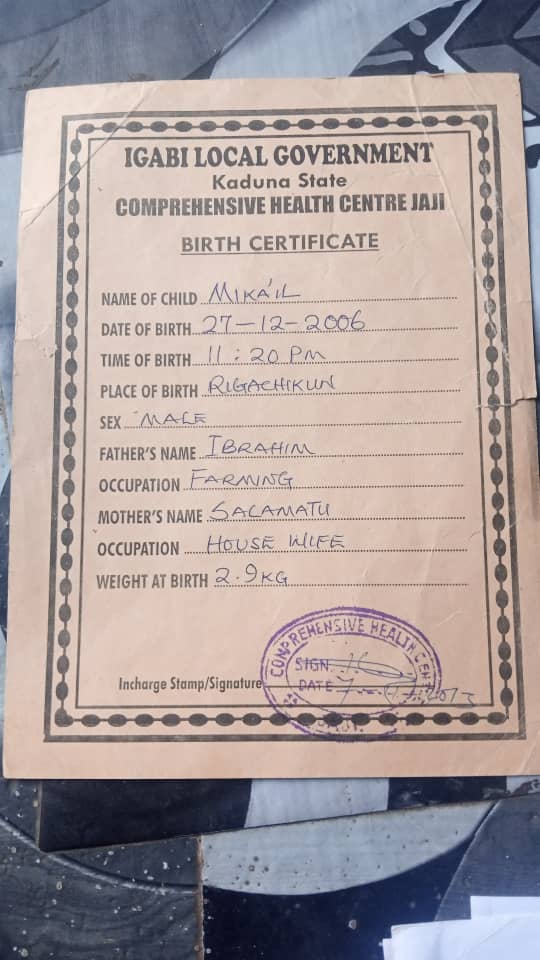 IGABI LOCAL GOVERNMENT
Kaduna State
COMPREHENSIVE HEALTH CENTRE JAJI
BIRTH CERTIFICATE
NAME OF CHILD MIKA'IL
DATE OF BIRTH 27-12-2006
TIME OF BIRTH 11:20 PM
PLACE OF BIRTH RIGACHIKUN
SEX MALE
FATHER'S NAME IBRAHIM
OCCUPATION FARMING
MOTHER'S NAME SALAMATU
OCCUPATION HOUSE WIFE
WEIGHT AT BIRTH 2.9KG
COMPREHENSIVE HEALTH CENT
SIGN
Incharge Stamp/Signature
DATE 7